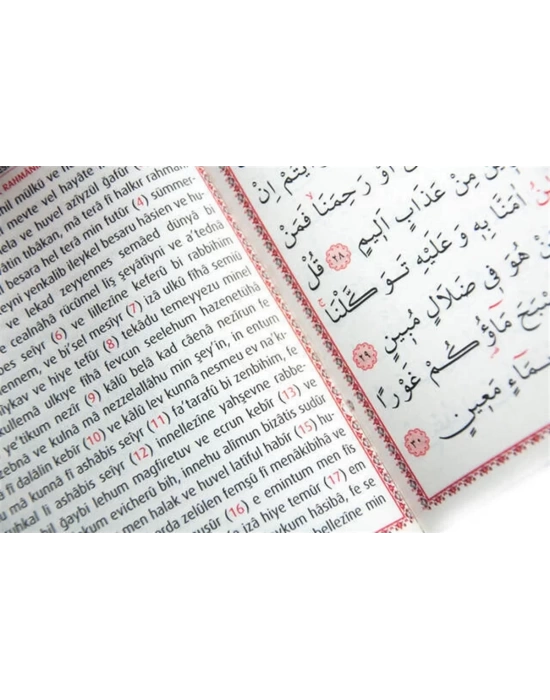 RAHMAN
hil mülkü ve
meyte vel hayate
ve huvel azîyzül gafûr
tıbâkan, mâ terâ fî halkır rahmân
besara hel terâ min futûr (4) sümmer-
yenkalib ileykel besaru hâsien ve hu-
ve lekad zeyyennes semâed dünyâ bi
cealnâhâ rücûmel liş şeyâtiyni ve a'tednâ
bes seıyr (6) ve lillezîne keferû bi rabbihim
ennem, ve bi'sel mesıyr (7) izâ ulkû fîhâ semiû
ıykav ve hiye tefûr (8) tekâdu temeyyezu minel
küllemâ ulkıye fîhâ fevcun seelehum hazenetühâ
e'tikum nezîr (9) kâlû belâ kad câenâ nezîrun fe
zebnâ ve kulnâ mâ nezzelallâhu min şey'in, in entum
fî dalâlin kebîr (10) ve kâlû lev kunnâ nesmeu ev na'kı-
mâ kunnâ fî ashâbis seıyr (11) fa'tarafû bi zenbihim, fe
uhkal li ashâbis seıyr (12) innellezîne yahşevne rabbe-
bil ğaybi lehum mağfiretuv ve ecrun kebîr (13) ve
kum evicherû bih, innehu alîmun bizâtis sudûr
men halak ve huvel latîful habîr (15) hu-
arda zelûlen femşû fî menâkibihâ ve
uşûr (16) e emintum men fis
izâ hiye temûr (17) em
ykum hâsibâ, fe se
bellezîne min
اِنْ
اَوْ رَحِمَنَا فَمَنْ
مِنْ عَذَابٍ اَلِيمٍ ﴿٢٨﴾ قُلْ
اٰمَنَّا بِهِ وَ عَلَيْهِ تَوَكَّلْنَا
هُوَ فِى ضَلَالٍ مُبِينٍ ﴿٢٩﴾
مَاؤُكُمْ غَوْرًا
مَعِينٍ ﴿٣٠﴾